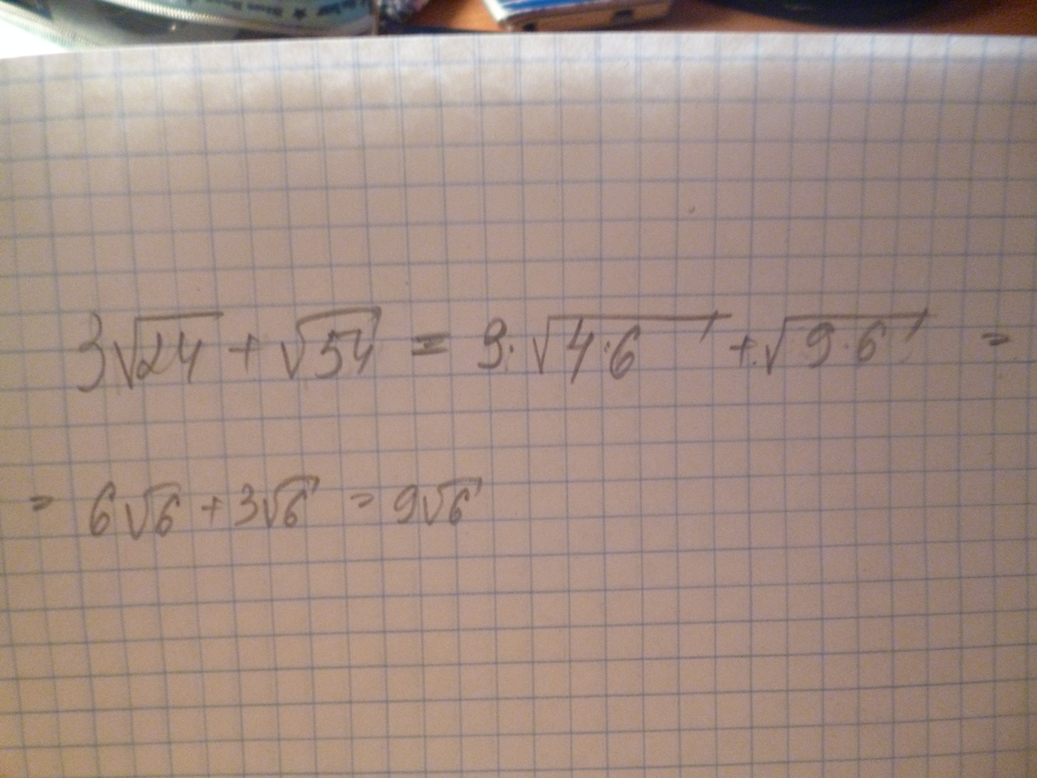 3√24 + √54 = 3·√4·6 + √9·6 =
= 6√6 + 3√6 = 9√6